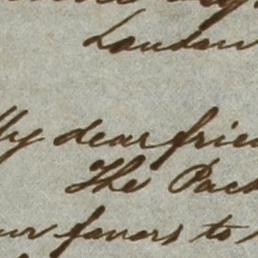 London
My dear frien
The Pack
ur favors to